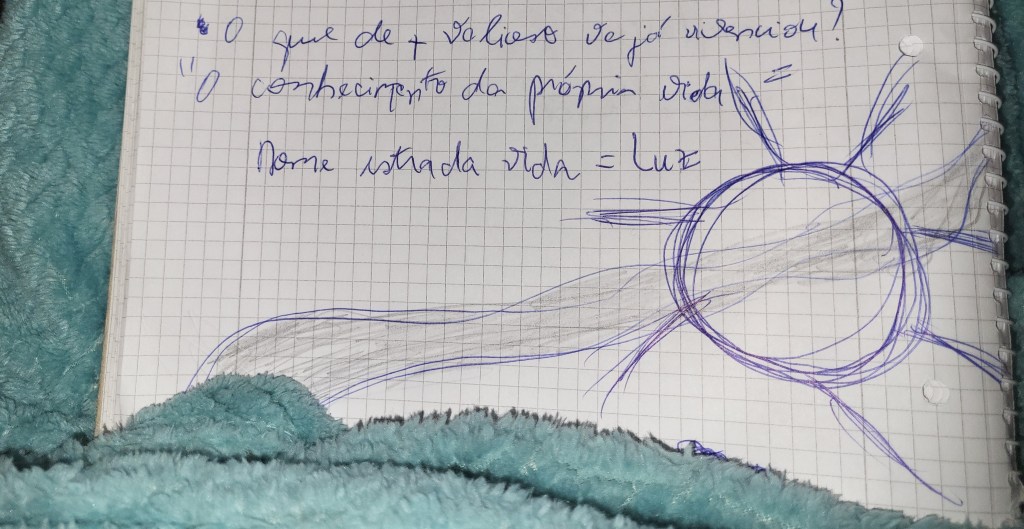 O que de + valioso vc já vivenciou?
"O conhecimento da própria vida =
Nome estrada vida = Luz